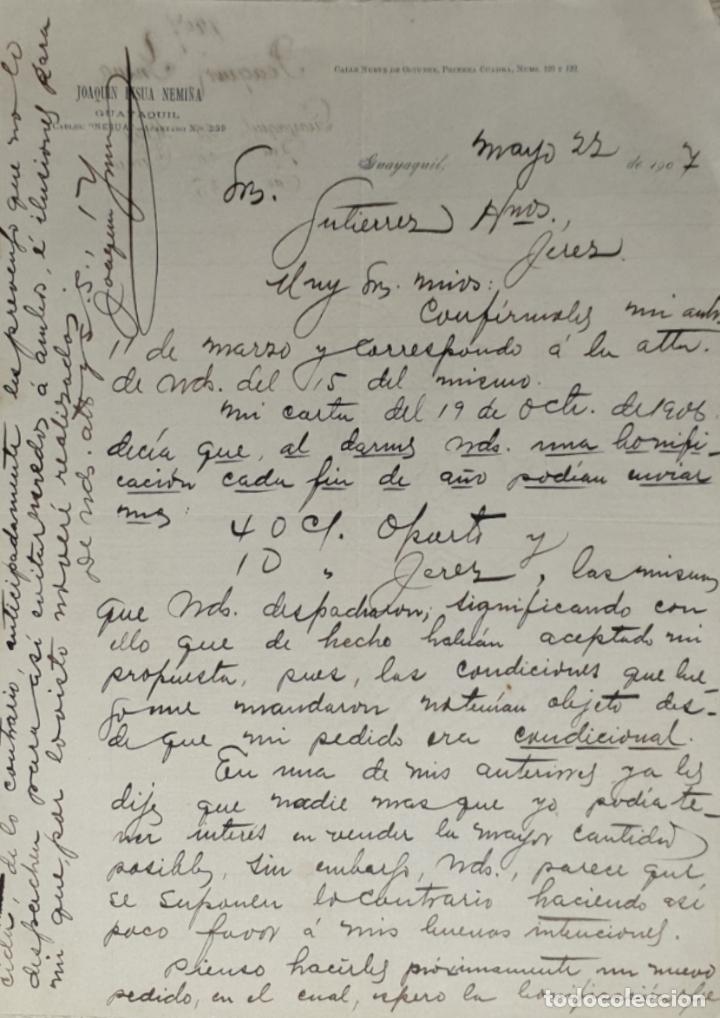 CALLE NUEVE DE OCTUBRE, PRIMERA CUADRA, NUMS. 120 Y 122
JOAQUIN INSUA NEMIÑA
GUAYAQUIL
CABLES: "NESUA" - APARTADO No. 239
Guayaquil, Mayo 22 de 1907
Srs.
Gutierrez Hnos.,
Jerez.
Muy Srs. mios:
Confírmoles mi antr.
11 de marzo y correspondo á la atta.
de Vds. del 15 del mismo.
Mi carta del 19 de Octr. de 1906
decía que, al darme Vds. una bonifi-
cación cada fin de año podían enviar
me:
40 c/. Oporto y
10 " Jerez, las mismas
que Vds. despacharon, significando con
ello que de hecho habían aceptado mi
propuesta, pues, las condiciones que lue-
go me mandaron no tenían objeto des-
de que mi pedido era condicional.
En una de mis anteriores ya les
dije que nadie mas que yo podía te-
ner interés en vender la mayor cantidad
posible, sin embargo, Vds., parece que
se suponen lo contrario haciendo así
poco favor á mis buenas intenciones.
Pienso hacerles próximamente un nuevo
pedido, en el cual, espero la bonificación
cida, de lo contrario, anticipadamente les prevengo que no lo
despachen para así evitar enredos á ambos, é ilusiones para
mi que, por lo visto no veré realizadas.
De Vds. atto. y S.S.
Joaquin Insua N
todocoleccion